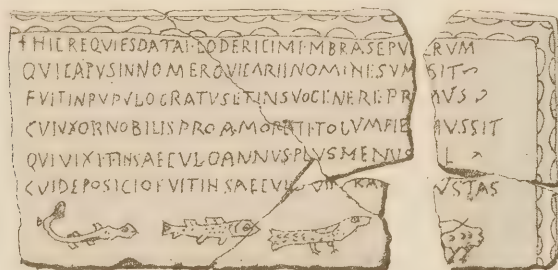 †HICREQVIESDATAI·LODERICIMI·MBRASEPV ERVM
QVICAPVSINNOMEROVICARIINOMINESVM SIT
FVITINPVPVLOGRATVSETINSVOGENEREPR AVS
CVIVXORNOBILISPROAMORETITOLVMFIE AVSSIT
QVIVIXITINSAECVLOANNVSPLVSMENVS L
CVIDEPOSICIOFVITINSAECVL VII KAL VSTAS